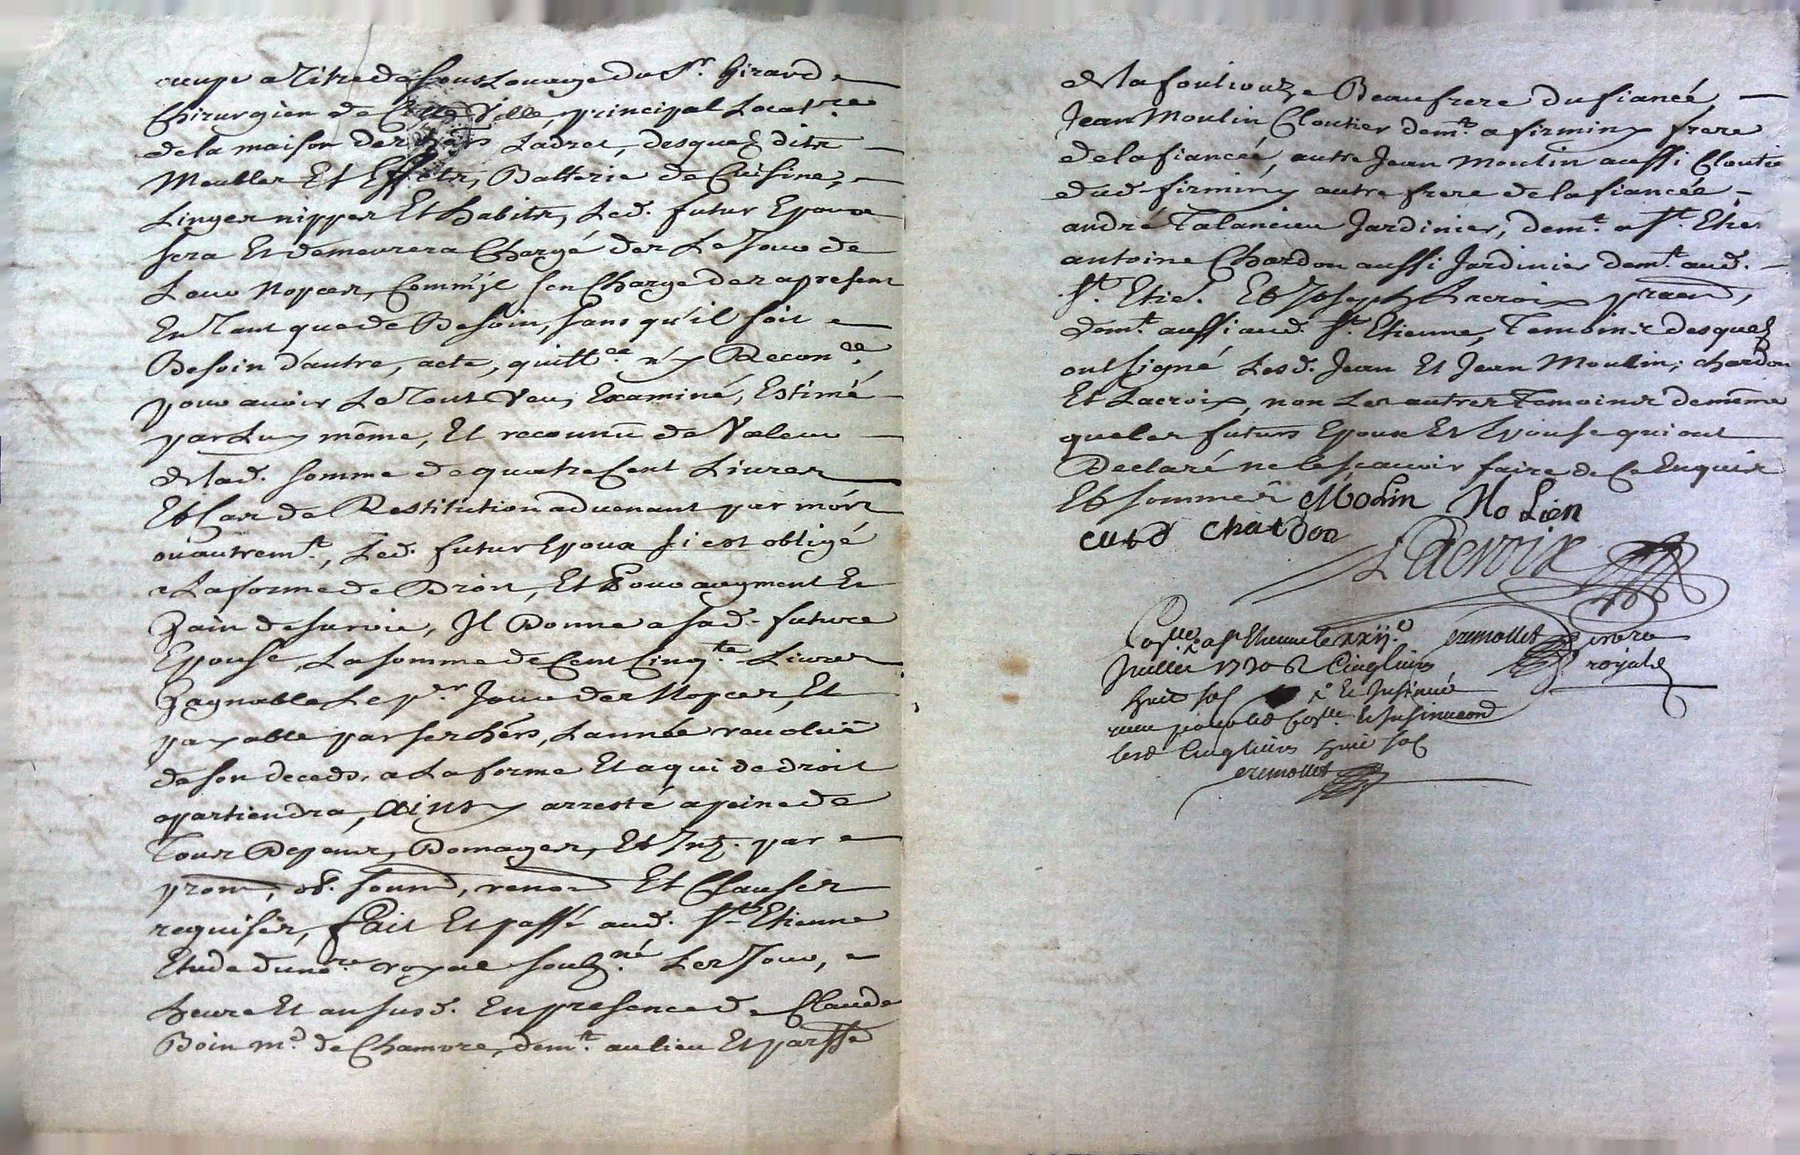 occupe a Titre de souslouage du Sr. Girard
Chirurgien de Cette Ville principal Locatre
de la maison des hers Ladret, desquels dits
Meubles Et Effets, Batterie de Cuisine,
Linges nippes Et habits, Led. futur Epoux
sera Et demeurera Chargé des Le Jour de
Leur Nopces, Comm'jl s'en Charge des apresent
En Tant que de Besoin, sans qu'il soit
Besoin d'autre, acte, quittce ny Reconce,
pour avoir Le Tout Veu, Examiné, Estimé
par Luy même, Et reconnû de Valeur
de lad. somme de quatre Cent Livres
Et Cas de Restitution advenant par mort
ou autremt, Led. futur Epoux s'i est obligé
a La forme de Droit, Et Pour augment Et
Gain de survie, Il Donne a sad. future
Epouse, La somme de Cent Cinqte Livres
Gagnable Le pr Jour des Nopces, Et
payable par ses hers, L'année revoluë
de son deceds, a La forme Et a qui de droit
apartiendra, Ainsy arresté a peine de
Tous Depens, Domages, Et Intz. par
prom, ob. soum, renon Et Clauses
requises, fait Et passé aud. St Etienne
Etude du nre royal soubzné Les Jour,
heure Et an susd. En presence de Claude
Boin md de Chamvre, demt au lieu Et parsse
de la fouliouze Beaufrere du fiancé,
Jean Moulin Cloutier demt a firminy frere
de la fiancée, autre Jean Moulin aussi Cloutie
dud. firminy autre frere de la fiancée
andré Talancieu Jardinier, demt a St. Etie.
antoine Chardon aussi Jardinier demt aud.
St. Etie. Et Joseph Lacroix pracn,
demt aussi aud. St Etienne, Temoins desquelz
ont signé Lesd. Jean Et Jean Moulin, chardon
Et Lacroix, non Les autres Temoins de même
que les futurs Epoux Et Epouse qui ont
Declaré ne le scavoir faire de Ce Enquis
Et sommés Molin Mo Lien
chardon
LAcroix
Conlle a St Etienne le xxije
Juillet 1730 R Cinq livres
huit sols
royale
lesd Cinq livres huit sols